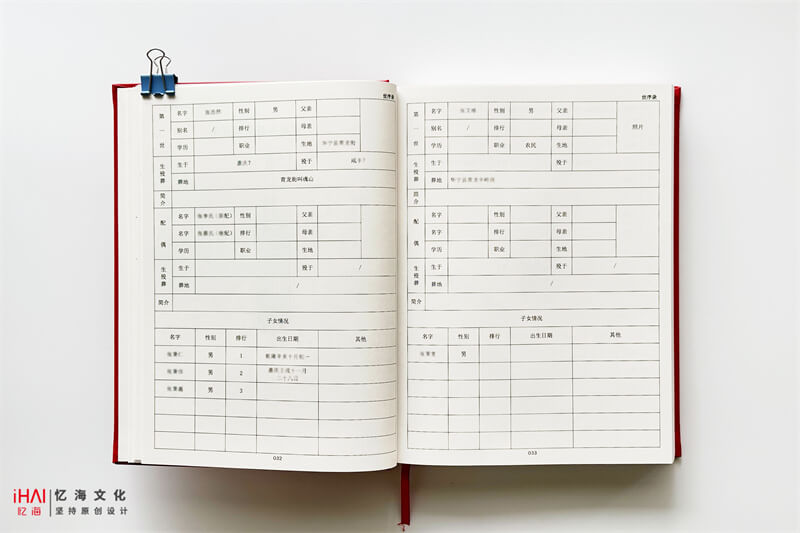 世序录
第一世 名字 张浩然 性别 男 父亲
别名 / 排行 母亲
学历 职业 生地 华宁县青龙街
生殁葬 生于 嘉庆? 殁于 咸丰?
葬地 青龙街叫魂山
简介
配偶 名字 张李氏（原配） 性别 父亲
名字 张蔡氏（继配） 排行 母亲
学历 职业 生地
生殁葬 生于 殁于 /
葬地 /
简介
子女情况
名字 性别 排行 出生日期 其他
男 1 乾隆辛亥十月初一
男 2 嘉庆壬戌十一月
二十八日
男 3
032
世序录
第一世 名字 性别 男 父亲 照片
别名 / 排行 母亲
学历 职业 农民 生地
生殁葬 生于 殁于
葬地
简介
配偶 名字 性别 父亲
名字 排行 母亲
学历 职业 生地
生殁葬 生于 殁于 /
葬地 /
简介
子女情况
名字 性别 排行 出生日期 其他
男
033
iHAI 忆海文化
忆海 坚持原创设计